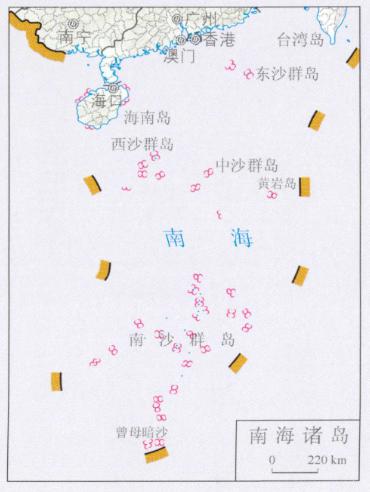 广州
南宁
香港
澳门
台湾岛
东沙群岛
海口
海南岛
西沙群岛
中沙群岛
黄岩岛
南海
南沙群岛
曾母暗沙
南海诸岛
0 220 km